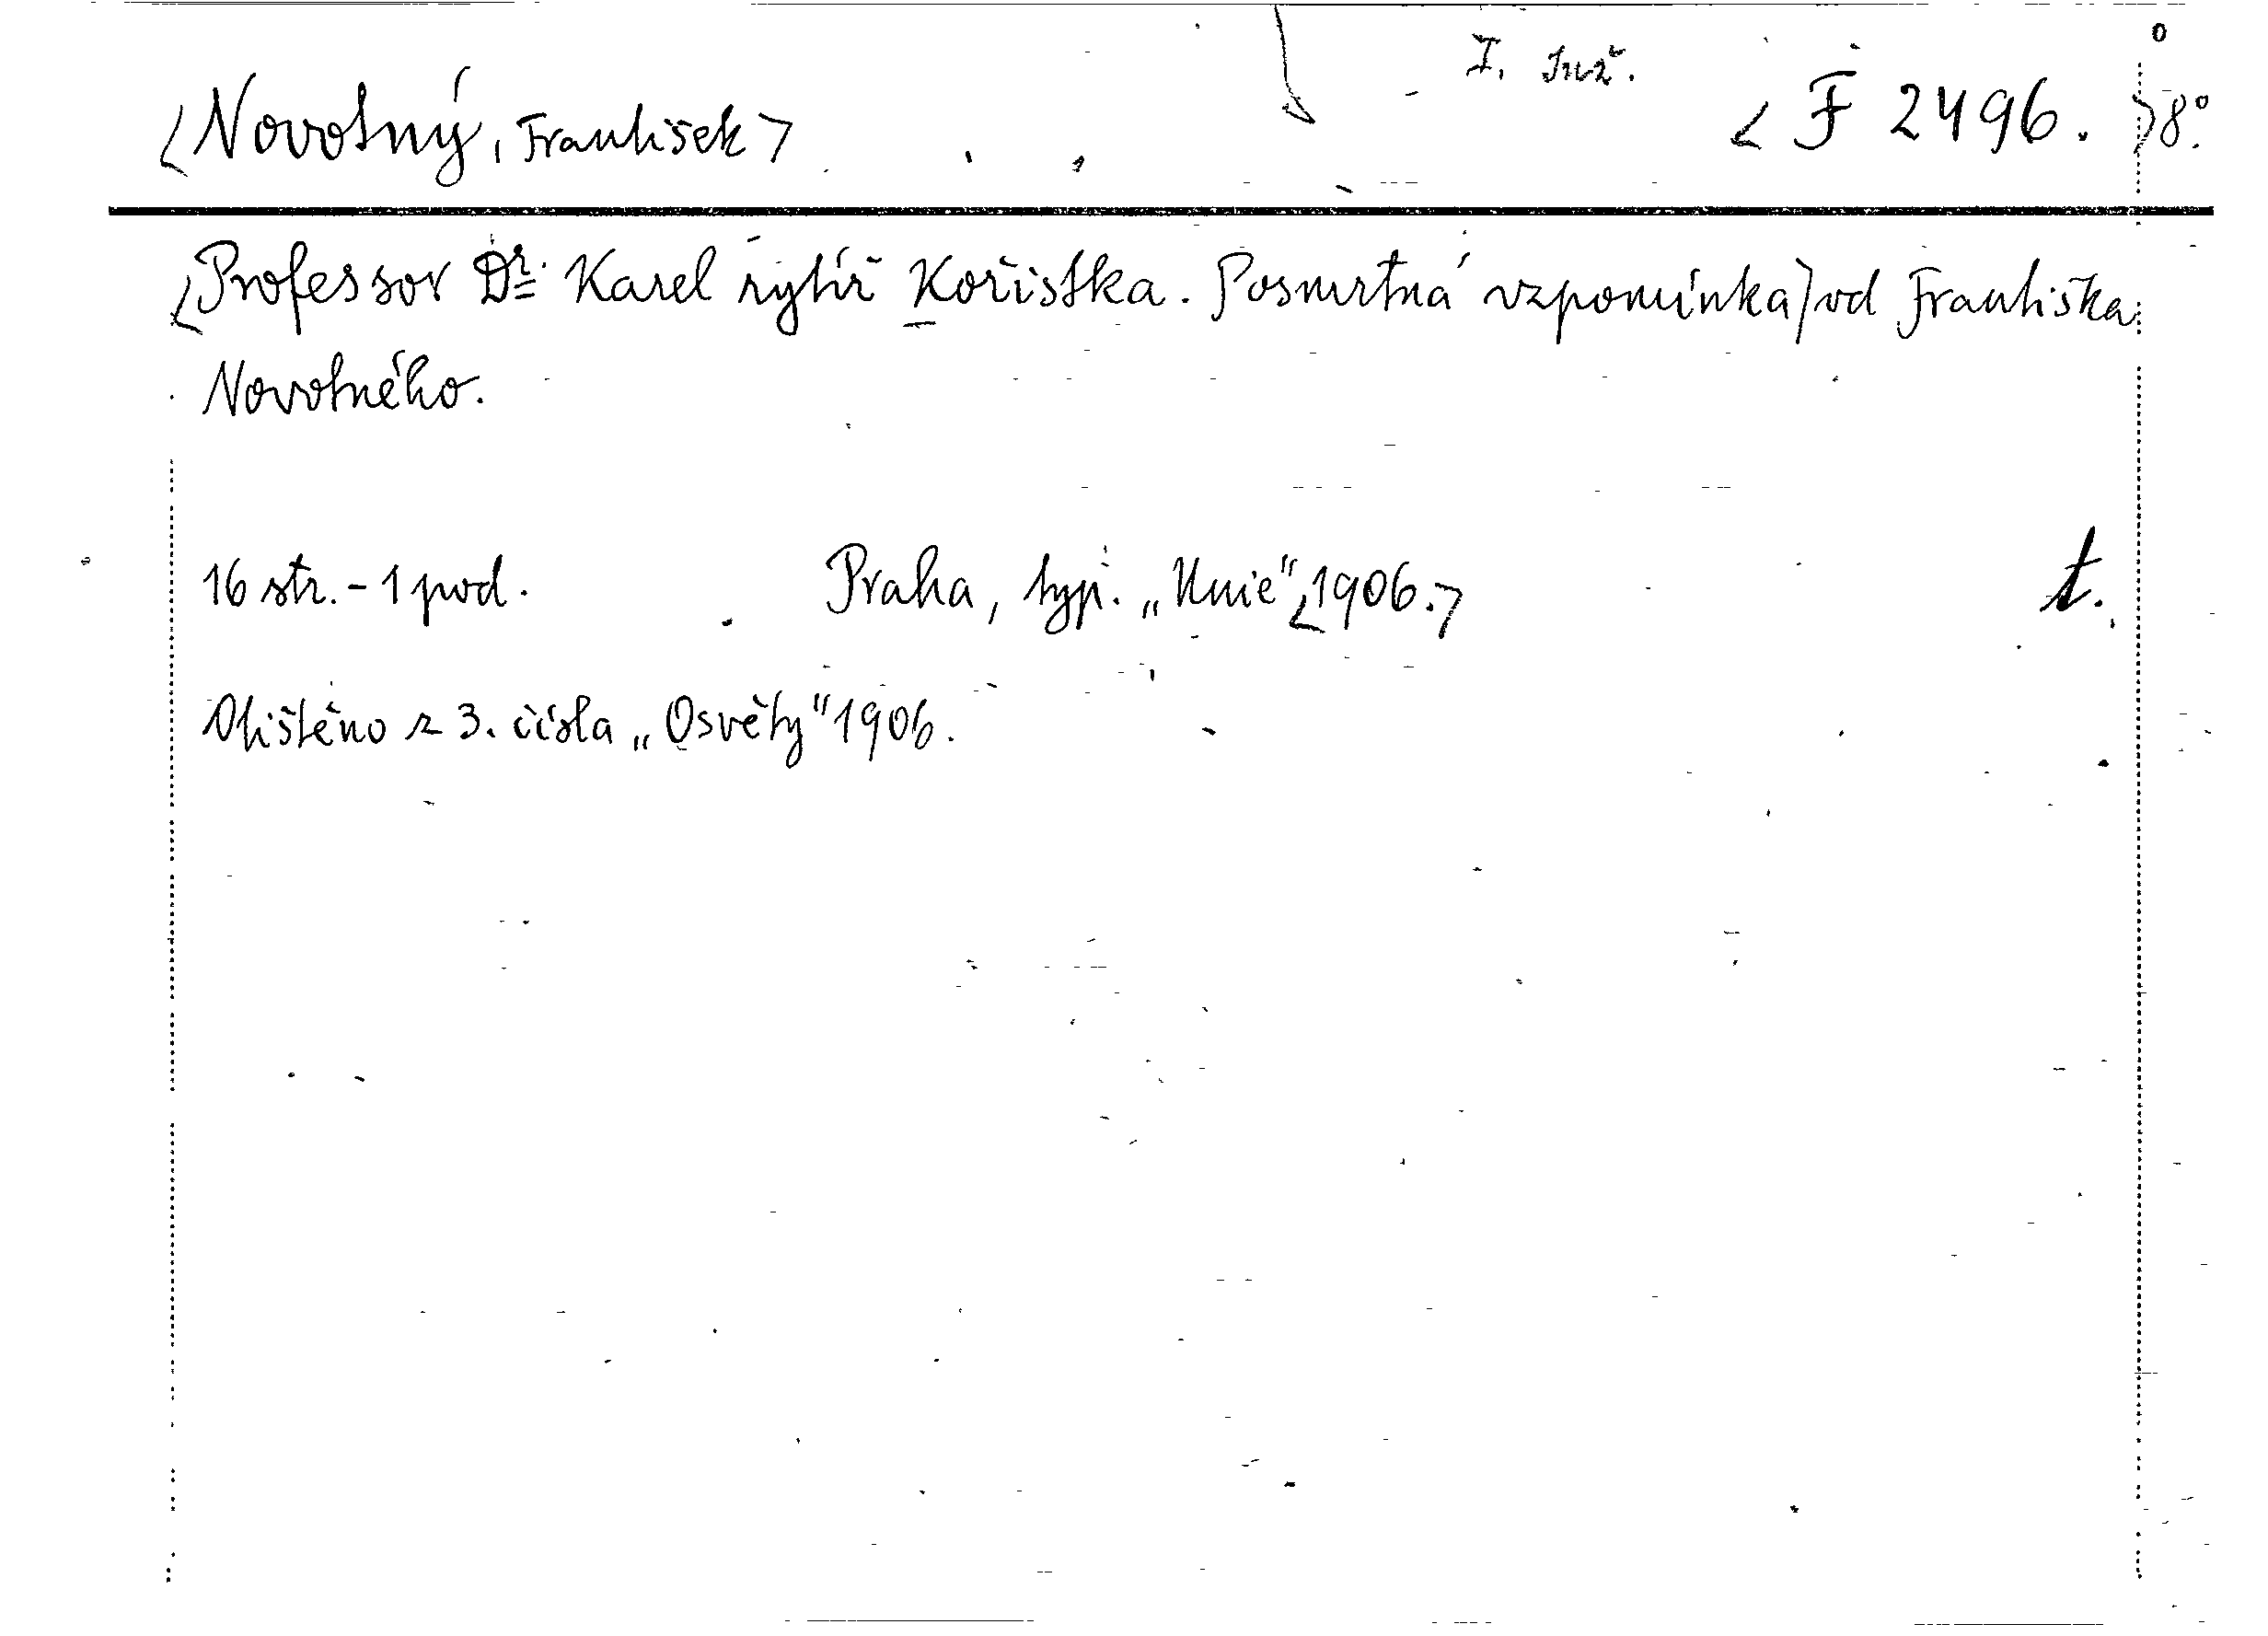 I. Inž.
<Novotný, František> <F 2496.>8°.
<Professor Dr. Karel rytíř Kořistka. Posmrtná vzpomínka> od Františka
Novotného.
16 str. - 1 pod. Praha, typ. „Unie“, <1906.> t.
Otištěno z 3. čísla „Osvěty“ 1906.